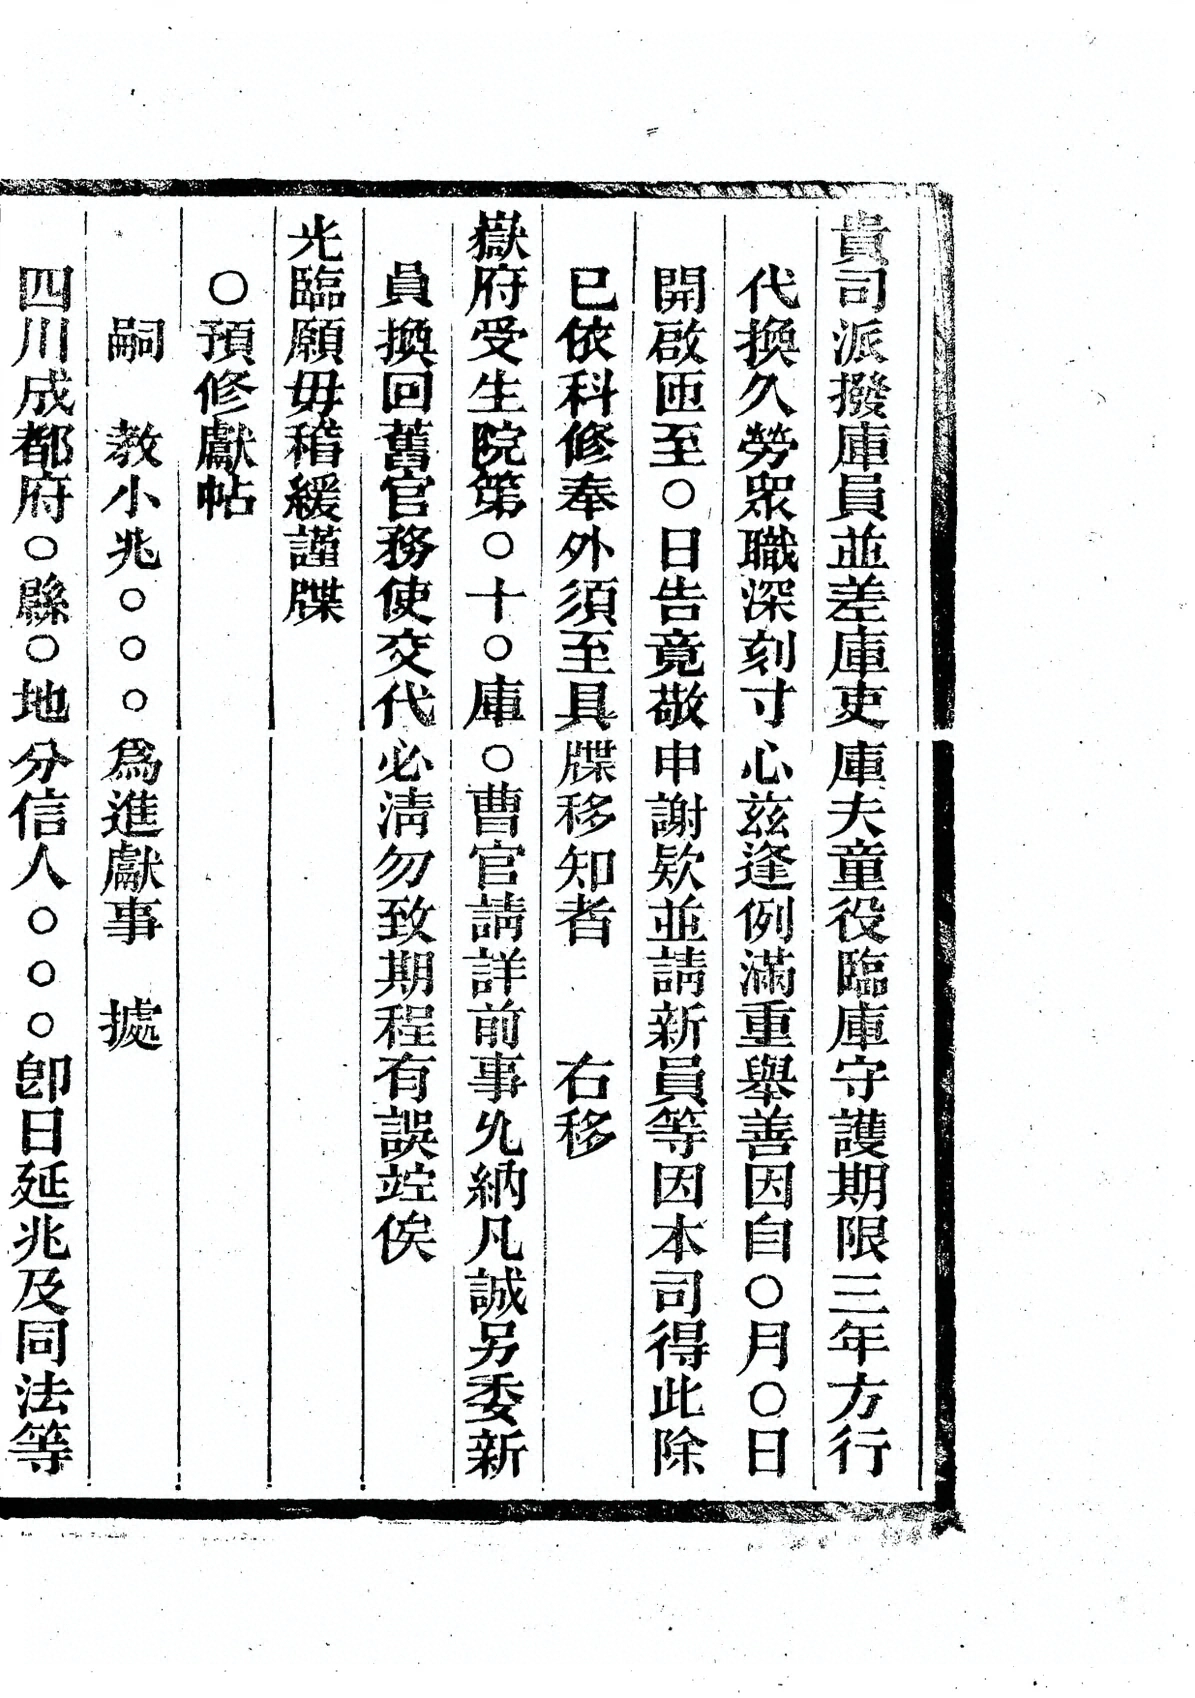 貴司派撥庫員並差庫吏庫夫童役臨庫守護期限三年方行
代換久勞眾職深刻寸心茲逢例滿重舉善因自○月○日
開啟匝至○日告竟敬申謝欵並請新員等因本司得此除
已依科修奉外須至具牒移知者　右移
嶽府受生院第○十○庫○曹官請詳前事允納凡誠另委新
員換回舊官務使交代必清勿致期程有誤竚俟
光臨願毋稽緩謹牒
○預修獻帖
嗣　教小兆○○○為進獻事　據
四川成都府○縣○地分信人○○○卽日延兆及同法等